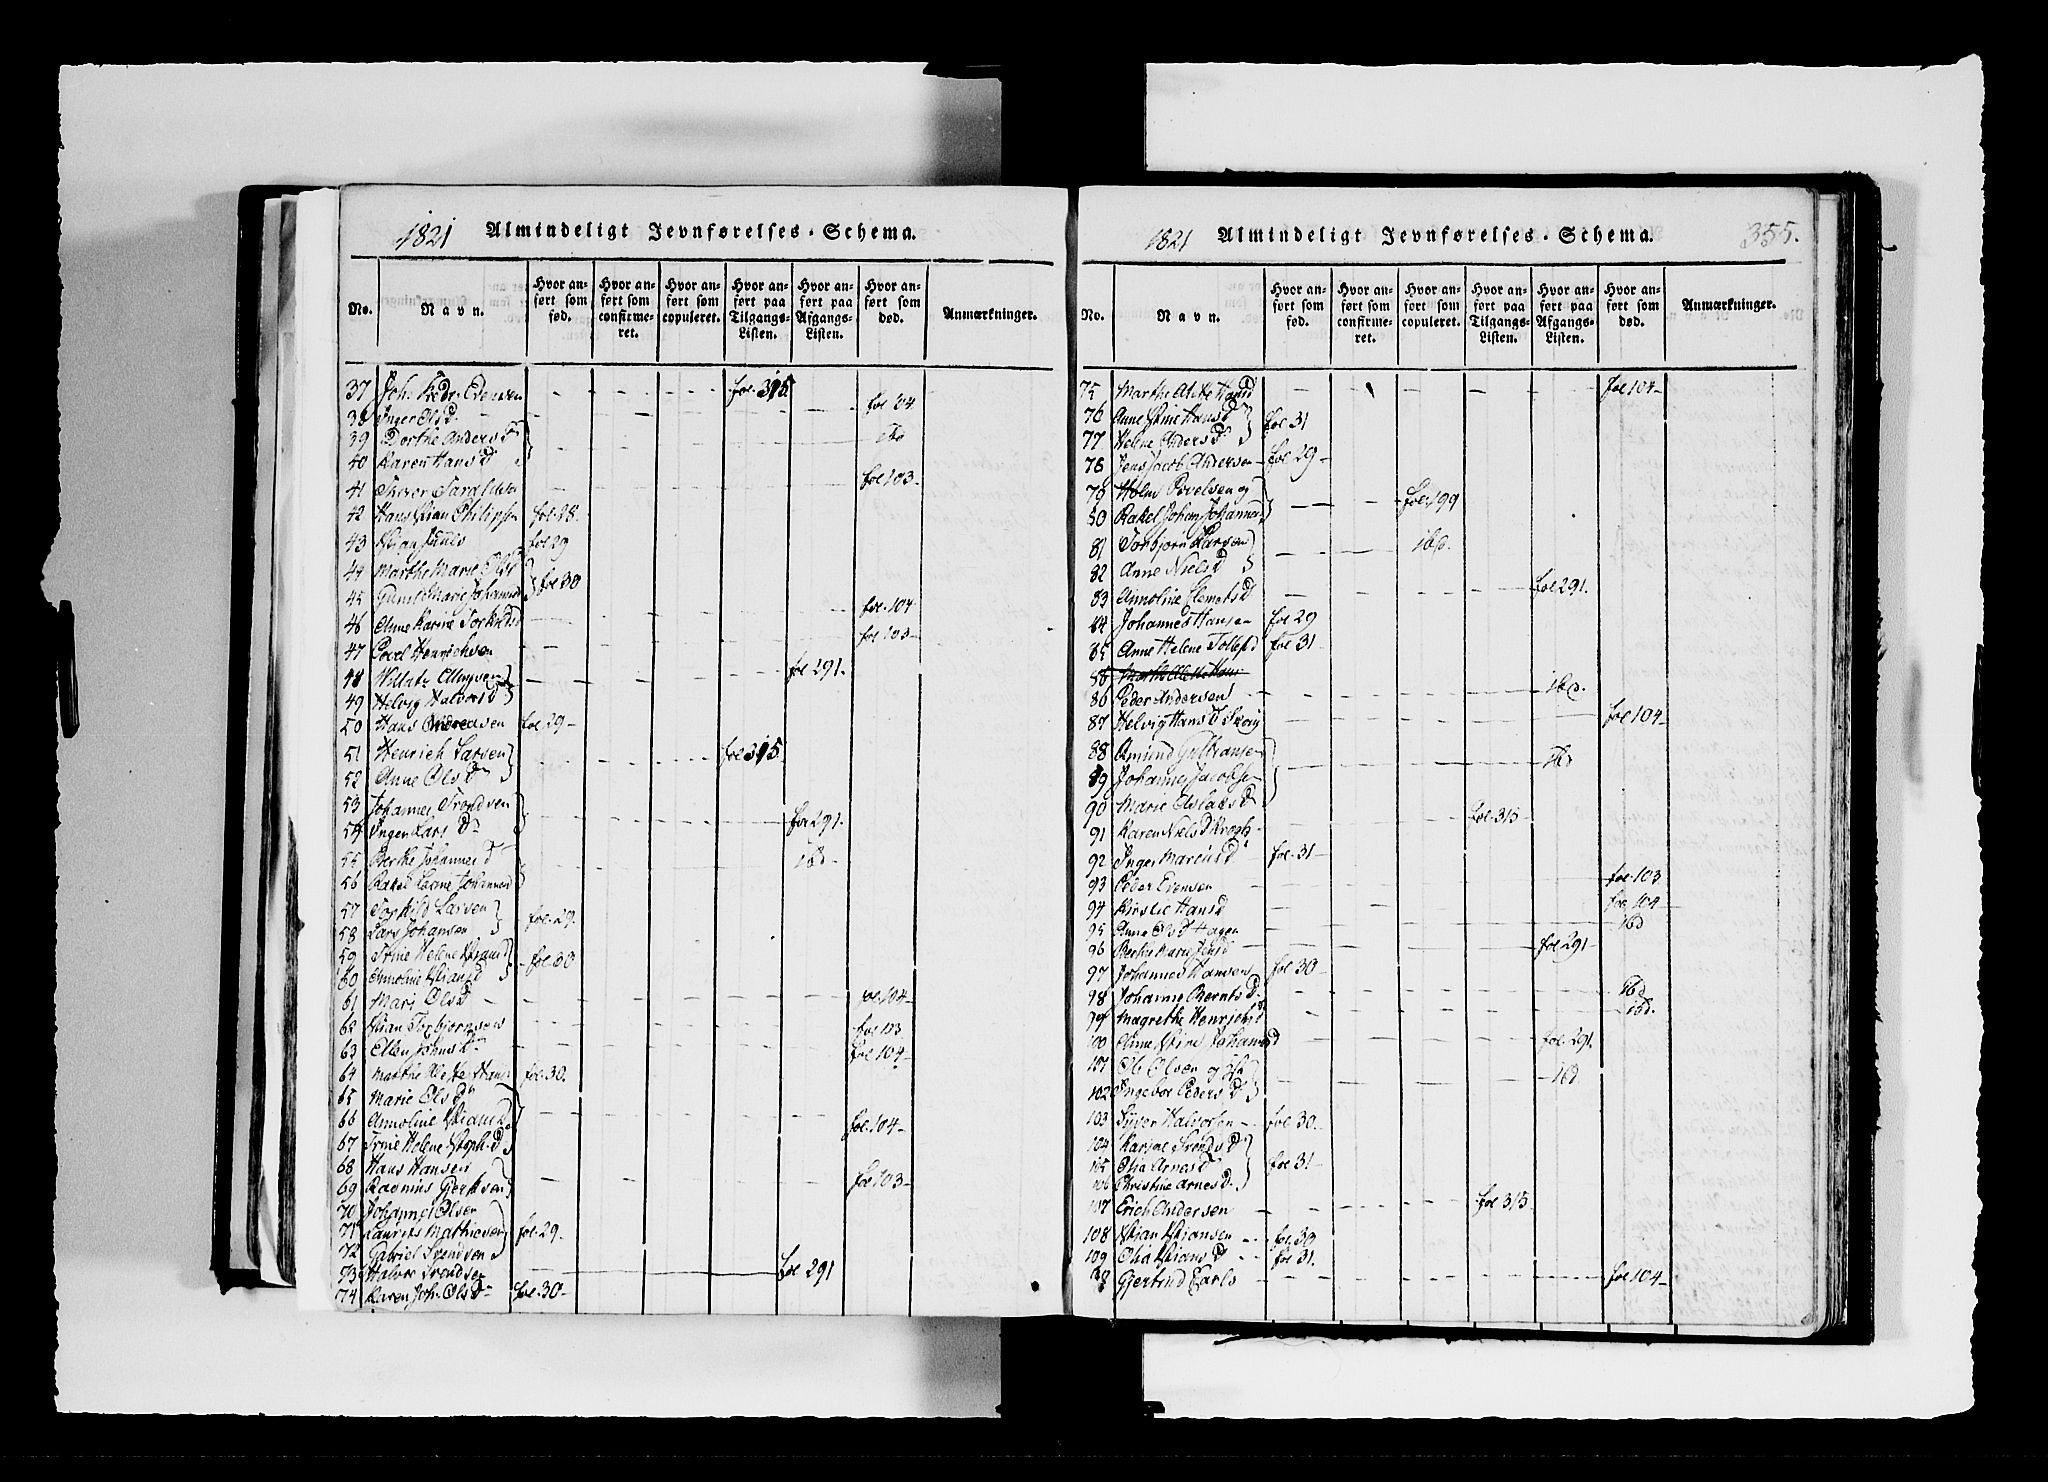 1821 Almindeligt Jevnførelses-Schema.
No.
Navn.
Hvor anført som fød.
Hvor anført som confirmeret.
Hvor anført som copuleret.
Hvor anført paa Tilgangs-Listen.
Hvor anført paa Afgangs-Listen.
Hvor anført som død.
Anmærkninger.
37 Joh. Fredr. Evensen fol. 315
38 Inger Olsd fol 104
39 Dorthe Anders D ibd
40 Karen Hans D
41 fol 103
42 Hans Philipsen fol. 28.
43 fol 29
44 Marthe Marie Ols
45 Gunil Marie Johannesd fol 30
46 Anne Karine Torkilds fol. 104
47 Povel Henrichsen fol 103
48 fol 291
49 Helvig Halvors D
50 Hans Andreasen fol 29
51 Henrich Larsen
52 Anne Ols D fol 315
53 Johannes Trondsen
54 Inger Lars D fol 291
55 Berthe Johannes D ibd
56 Rakel Johannesd
57 Torkild Larsen
58 Lars Johansen fol. 29.
59 Trine Helene
60 Annoline fol. 30
61 Mari Ols D fol. 104
62 Torbjørnsen fol 103
63 Ellen fol 104
64 Marthe Alette Hans fol. 30.
65 Marie Ols D
66 Annoline
67 Trine Helene fol. 104
68 Hans Hansen
69 Rasmus Gjertsen fol 103
70 Johannes Olsen
71 Laurits Mathiesen fol. 29.
72 Gabriel Svendsen
73 Halvor Trondsen fol 291
74 Karen Joh. Ols D fol. 30
1821 Almindeligt Jevnførelses-Schema. 355.
No.
Navn.
Hvor anført som fød.
Hvor anført som confirmeret.
Hvor anført som copuleret.
Hvor anført paa Tilgangs-Listen.
Hvor anført paa Afgangs-Listen.
Hvor anført som død.
Anmærkninger.
75 Marthe Alette Hansd fol 104
76 Anne Stine Hans D
77 Helene Anders D fol 31
78 Jens Jacob Andersen fol 29
79 Holm Povelsen og
80 Rakel Johan Johannes fol. 199
81 Torbjørn Larsen ibd.
82 Anne Niels D
83 Annoline Clemets D fol 291.
84 Johannes Hansen fol 29
85 Anne Helene Tollefsd fol 31
86 Marthe Alette Hans
86 Peder Andersen ibd.
87 Helvig Hans D fol 104
88 Amund Gulbransen
89 Johannes Jacobsen ibd
90 Marie D
91 Karen Niels D Krogh fol 315
92 Inger Marcus D fol. 31
93 Peder Evensen fol. 103
94 Kirstie Hansd fol. 104
95 Anne Ols D Hagen ibd
96 Berthe Marie Jensd fol 291
97 Johannes Hansen fol 30
98 Johanne Bernts D ibd
99 Magrethe Henrichs D ibd.
100 Anne Johannesd fol. 291.
101 Ib Olsen og
102 Ingebor Peders D ibd
103 Syver Halvorsen fol 30.
104 Karine D
105 Olia Arnes D fol 31
106 Christine Arnes D
107 Erich Andersen fol 315
108 fol. 30
109 Olia fol 31.
Gjertrud Carls fol 104